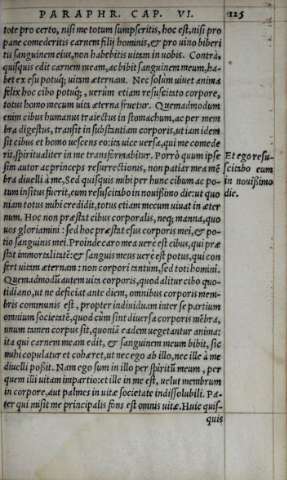 PARAPHR. CAP. VI. 125
tote pro certo, nisi me totum sumpseritis, hoc est, nisi pro
pane comederitis carnem filij hominis, & pro uino biberi
tis sanguinem eius, non habebitis uitam in uobis. Contrà,
quisquis edit carnem meam, ac bibit sanguinem meum, ha-
bet ex esu potuq́; uitam æternam. Nec solùm uiuet anima
felix hoc cibo potuq́;, uerùm etiam resuscitato corpore,
totus homo mecum uita æterna fruetur. Quemadmodum
enim cibus humanus traiectus in stomachum, ac per mem
bra digestus, transit in substantiam corporis, ut iam idem
sit cibus et homo uescens eo: ita uice uersa, qui me comede
rit, spiritualiter in me transformabitur. Porrò quum ipse
sim autor ac princeps resurrectionis, non patiar mea mē
bra diuelli à me. Sed quisquis mihi per hunc cibum ac po-
tum insitus fuerit, eum resuscitabo in nouissimo die: ut quo
niam totus mihi credidit, totus etiam mecum uiuat in æter
num. Hoc non præstat cibus corporalis, neq; manna, quo
uos gloriamini: sed hoc præstat esus corporis mei, & po-
tio sanguinis mei. Proinde caro mea uerè est cibus, qui præ
stat immortalitatē: & sanguis meus uerè est potus, qui con
fert uitam æternam: non corpori tantum, sed toti homini.
Quemadmodū autem uita corporis, quod alitur cibo quo-
tidiano, ut ne deficiat ante diem, omnibus corporis mem-
bris communis est, propter indiuiduam inter se partium
omnium societatē, quod cùm sint diuersa corporis mēbra,
unum tamen corpus sit, quoniā eadem uegetantur anima:
ita qui carnem meam edit, & sanguinem meum bibit, sic
mihi copulatur et cohæret, ut nec ego ab illo, nec ille à me
diuelli possit. Nam ego sum in illo per spiritū meum, per
quem illi uitam impartio: et ille in me est, uelut membrum
in corpore, aut palmes in uite societate indissolubili. Pa-
ter qui misit me principalis fons est omnis uitæ. Huic quis-
quis
Et ego resu-
scitabo eum
in nouissimo
die.